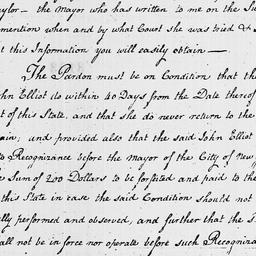 aylor — the Mayor who has written to me on the Su
mention when and by what Court she was tried &
t this Information you will easily obtain —
The Pardon must be on Condition that th
hn Elliot do within 40 Days from the Date thereof
t of this State, and that she do never return to the
ain; and provided also that the said John Elliot
to Recognizance before the Mayor of the City of New
e Sum of 200 Dollars to be forfeited and paid to the
this State in case the said Condition should not
lly performed and observed, and further that the
all not be in force nor operate before such Recogniza